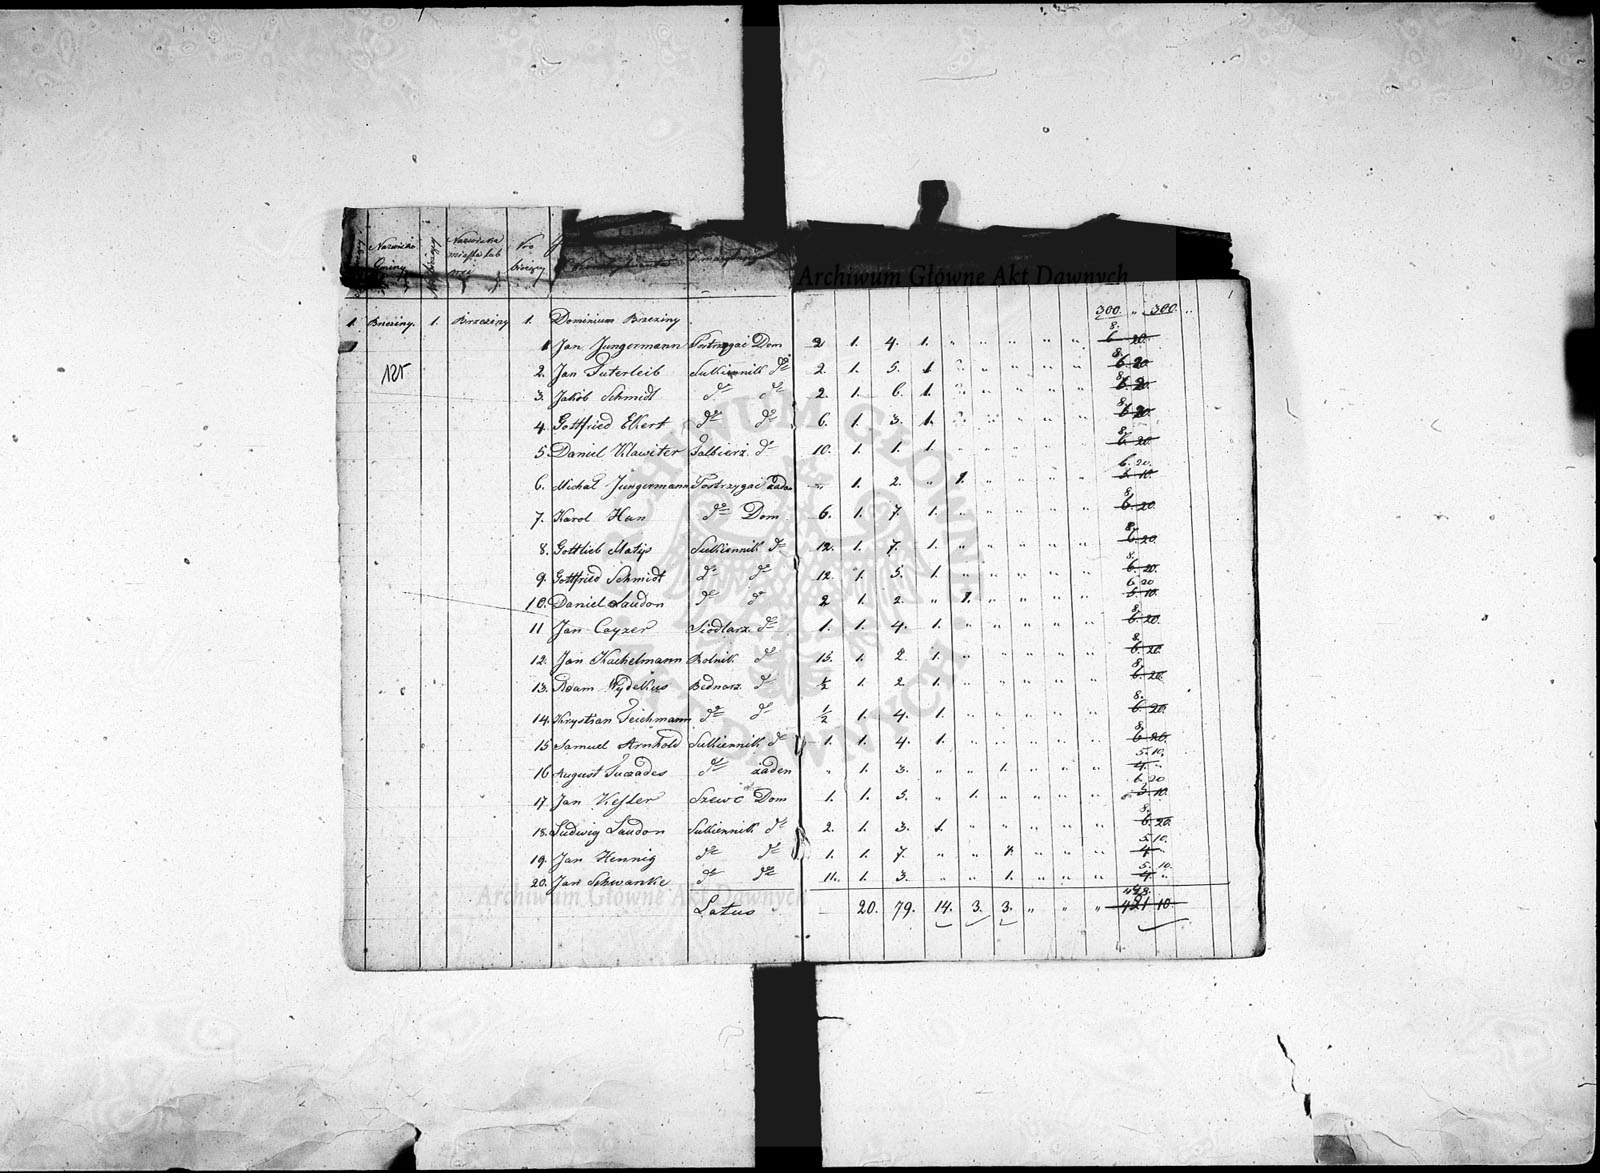 Nazwisko Nazwiska Nro
Gminy miasta lub bieżący
wsi
Archiwum Główne Akt Dawnych
1
1. Brzeziny. 1. Brzeziny 1. Dominium Brzeziny 300. " 300. "
1 Jan Jungermann Postrzygacz Dom 2 1. 4. 1. " " " " " 8. 6 20.
125
2. Jan Futerleib Sukiennik do 2. 1. 5. 1. " " " " " 8. 6 20
3. Jakób Schmidt do do 2. 1. 6. 1. " " " " " 8. 6 20.
4. Gottfried Ekert do do 6. 1. 3. 1. " " " " " 8. 6 20.
5. Daniel Klawiter Falbierz. do 10. 1. 1. 1. " " " " " 8. 6. 20.
6. Michał Jungermann Postrzygacz żaden " 1. 2. " 1. " " " " 6. 20. 5 10.
7. Karol Han do Dom 6. 1. 7. 1. " " " " " 8. 6. 20.
8. Gottlieb Matijs Sukiennik do 12. 1. 7. 1. " " " " " 8. 6. 20.
9. Gottfried Schmidt do do 12. 1. 5. 1. " " " " " 8. 6. 20.
10. Daniel Laudon do do 2 1. 2. " 1. " " " " 6 20 5. 10.
11 Jan Cayzer Siodlarz. do 1. 1. 4. 1. " " " " " 8. 6. 20.
12. Jan Kachelmann Rolnik. do 15. 1. 2. 1. " " " " " 8. 6. 20.
13. Adam Nydelkus Bednarz. do 1/2 1. 2 1. " " " " " 8. 6. 20.
14. Krystian Teichmann do do 1/2 1. 4. 1. " " " " " 8. 6. 20.
15 Samuel Arnhold Sukiennik do 1. 1. 4. 1. " " " " " 8. 6 20.
16 August Tuczades do żaden " 1. 3. " " 1. " " " 5. 10. 4. "
17. Jan Kesler Szewc Dom 1. 1. 3. " 1. " " " " 6. 20 5 10.
18. Ludwig Laudon Sukiennik do 2. 1. 3. 1. " " " " " 8. 6. 20.
19. Jan Hennig do do 1. 1. 7. " " 1. " " " 5 10. 4 "
20. Jan Schwanke do do 11. 1. 3. " " 1. " " " 5. 10. 4. "
Archiwum Główne Akt Dawnych
Latus 20. 79. 14. 3. 3. " " " 448. 421 10.